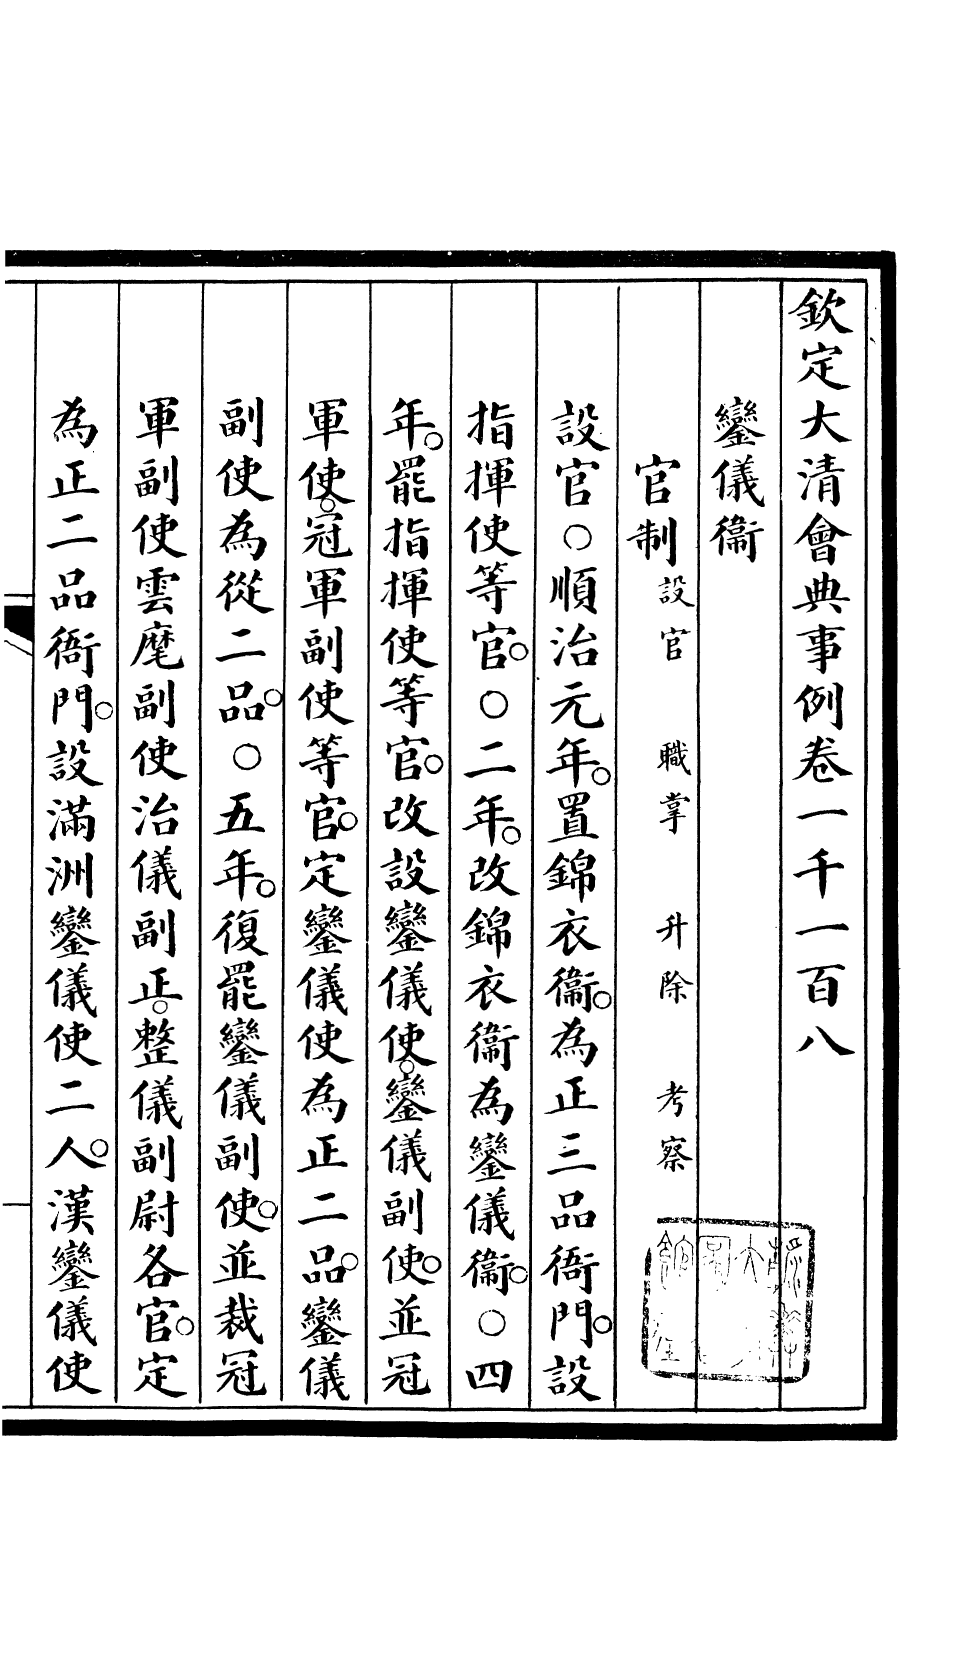 欽定大清會典事例卷一千一百八
鑾儀衞
官制 設官 職掌 升除 考察
設官○順治元年。置錦衣衞。為正三品衙門。設
指揮使等官。○二年。改錦衣衞為鑾儀衞。○四
年。罷指揮使等官。改設鑾儀使。鑾儀副使。並冠
軍使。冠軍副使等官。定鑾儀使為正二品。鑾儀
副使為從二品。○五年。復罷鑾儀副使。並裁冠
軍副使雲麾副使治儀副正。整儀副尉各官。定
為正二品衙門。設滿洲鑾儀使二人。漢鑾儀使